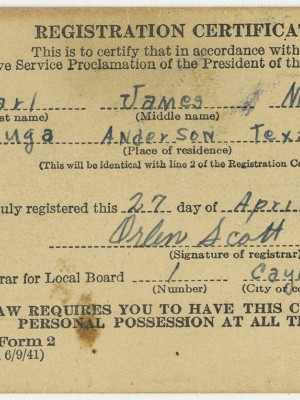 REGISTRATION CERTIFICAT
This is to certify that in accordance with
ve Service Proclamation of the President of th
arl James N
st name) (Middle name)
uga Anderson Tex
(Place of residence)
(This will be identical with line 2 of the Registration C
uly registered this 27 day of Apri
Orlen Scott
(Signature of registrar)
rar for Local Board 1 Cay
(Number) (City of co
AW REQUIRES YOU TO HAVE THIS C
PERSONAL POSSESSION AT ALL T
Form 2
6/9/41)